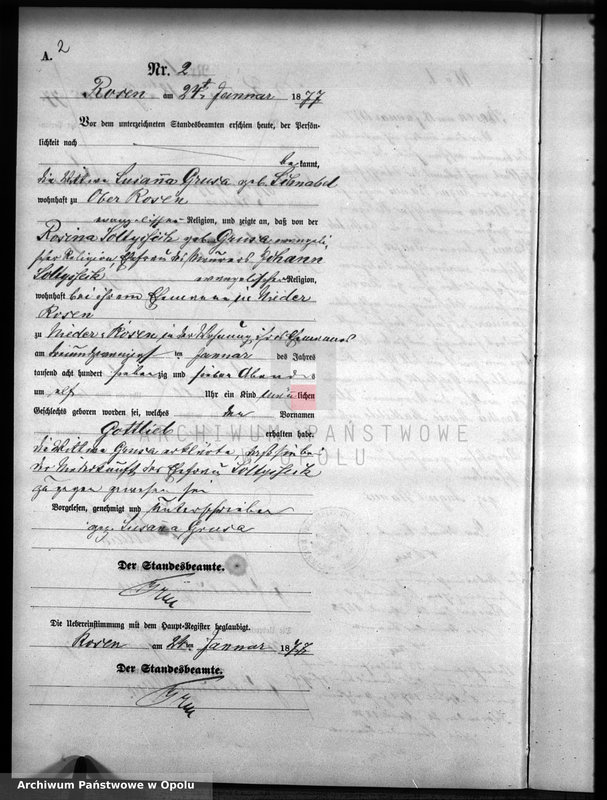 A. 2
Nr. 2
Rosen am 24t Januar 1877
Vor dem unterzeichneten Standesbeamten erschien heute, der Persön-
lichkeit nach
bekannt,
die Wittwe Susanna Grusa geb. Schnabel
wohnhaft zu Ober Rosen
evangelischer Religion, und zeigte an, daß von der
Rosina Soltyssek geb. Grusa evangeli
scher Religion, Ehefrau des Johann
Soltyssek evangelischer Religion,
wohnhaft bei ihrem Ehemanne in Nieder
Rosen
zu Nieder-Rosen, in der Wohnung ihres Ehemannes
am dreiundzwanzigsten ten Januar des Jahres
tausend acht hundert siebenzig und sieben Abends
um elf Uhr ein Kind männlichen
Geschlechts geboren worden sei, welches den Vornamen
Gottlieb erhalten habe.
die Wittwe Grusa erklärte, daß sie bei
der Niederkunft der Ehefrau Soltyssek
zugegen gewesen sei
Vorgelesen, genehmigt und unterschrieben
gez. Susana Grusa
Der Standesbeamte.
Die Uebereinstimmung mit dem Haupt-Register beglaubigt.
Rosen am 24ten Januar 1877
Der Standesbeamte.
ARCHIWUM PAŃSTWOWE
W OPOLU
Archiwum Państwowe w Opolu